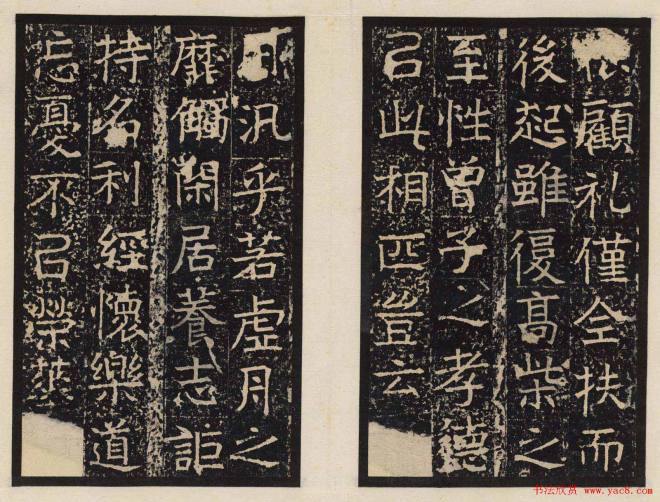 顧礼僅全扶而
後起雖復高柴之
至性曾子之孝德
㠯此相匹豈云
汎乎若虚舟之
靡觸閑居養志詎
持名利經懷樂道
忘憂不㠯榮
书法欣赏 www.yac8.com